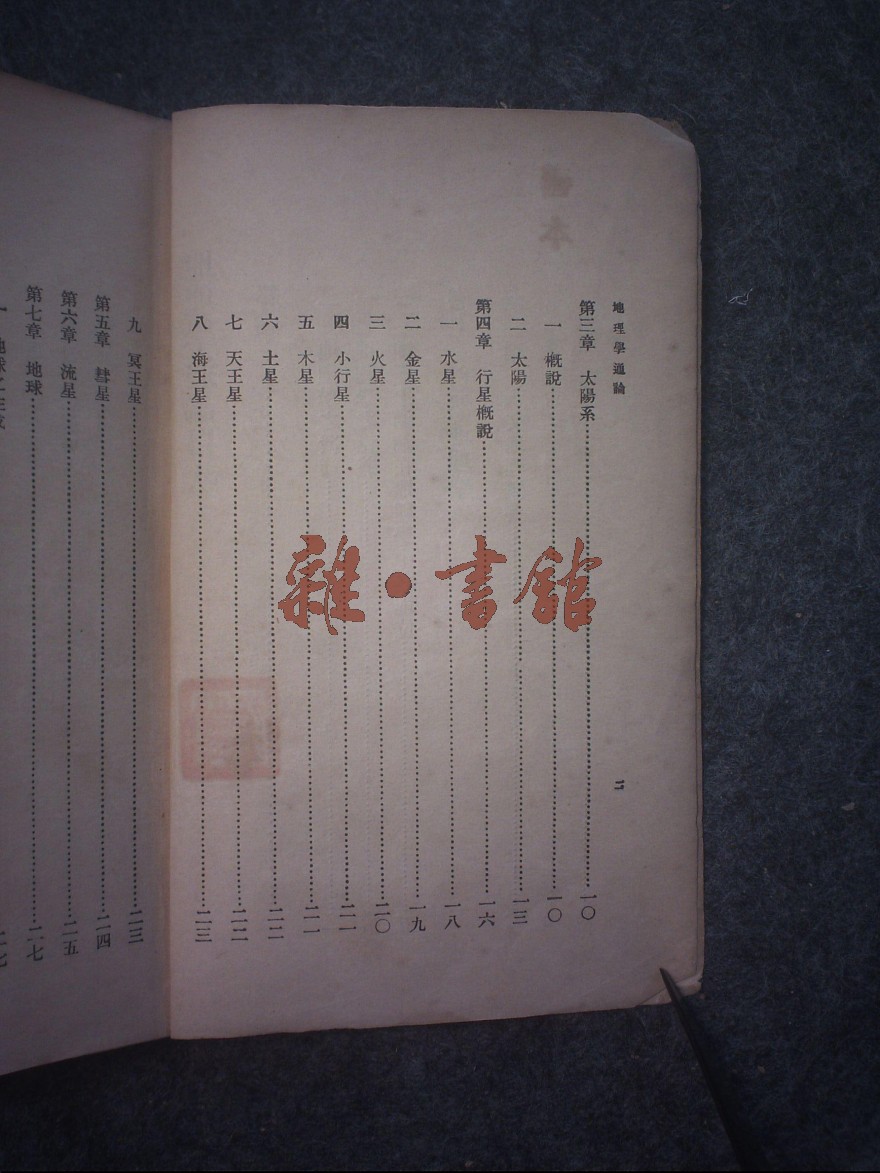 地理學通論 二
第三章 太陽系……一〇
一 槪說……一〇
二 太陽……一三
第四章 行星槪說……一六
一 水星……一八
二 金星……一九
三 火星……二〇
四 小行星……二一
五 木星……二一
六 土星……二二
七 天王星……二二
八 海王星……二三
九 冥王星……二三
第五章 彗星……二四
第六章 流星……二五
第七章 地球……二七
一 地球之……二七
雜·書館